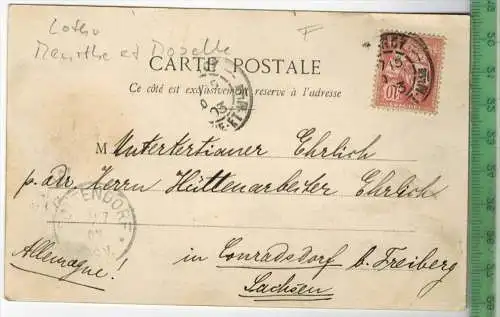 Meurthe et Moselle
CARTE POSTALE
Ce côté est exclusivement réservé à l'adresse
M Untertertianer Ehrlich
p. adr. Herrn Hüttenarbeiter Ehrlich
Allemagne!
in Conradsdorf b. Freiberg
Sachsen
10